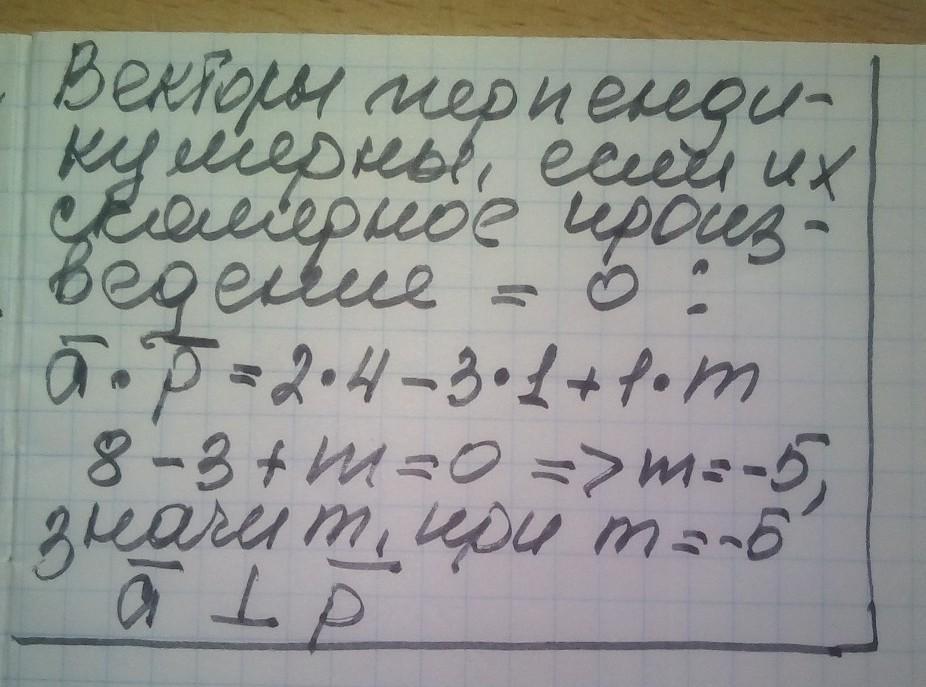 Векторы перпенди-
кулярны, если их
скалярное произ-
ведение = 0 :
a̅ · p̅ = 2·4 - 3·1 + 1·m
8 - 3 + m = 0 => m = -5,
значит, при m = -5
a̅ ⊥ p̅